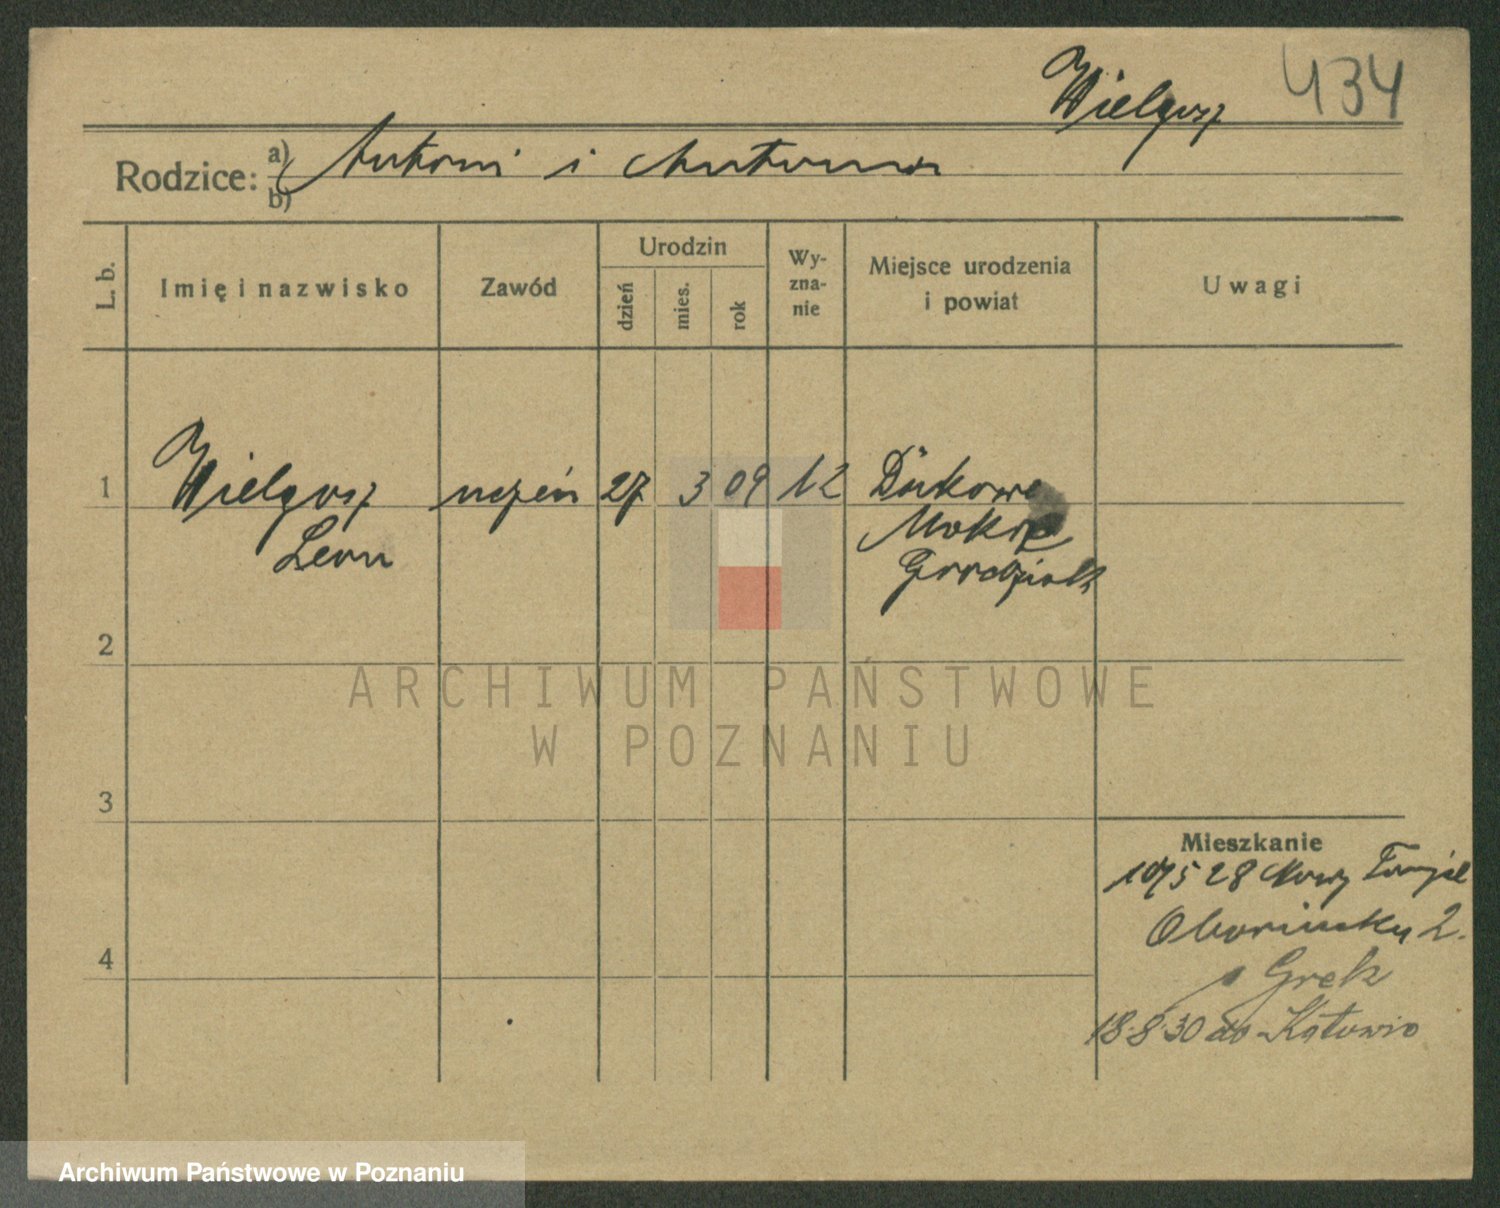 Wielgosz 434
Rodzice: a) Antoni i Antonina
b)
L. b. Imię i nazwisko Zawód Urodzin dzień mies. rok Wy-zna-nie Miejsce urodzenia i powiat Uwagi
1 Wielgosz uczeń 27 3 09
Leon Mokre
Grodzisk
2
3
Mieszkanie
28 Nowy Tomyśl
4
2.
Grek
18.8.30 do Katowic
ARCHIWUM PAŃSTWOWE
W POZNANIU
Archiwum Państwowe w Poznaniu